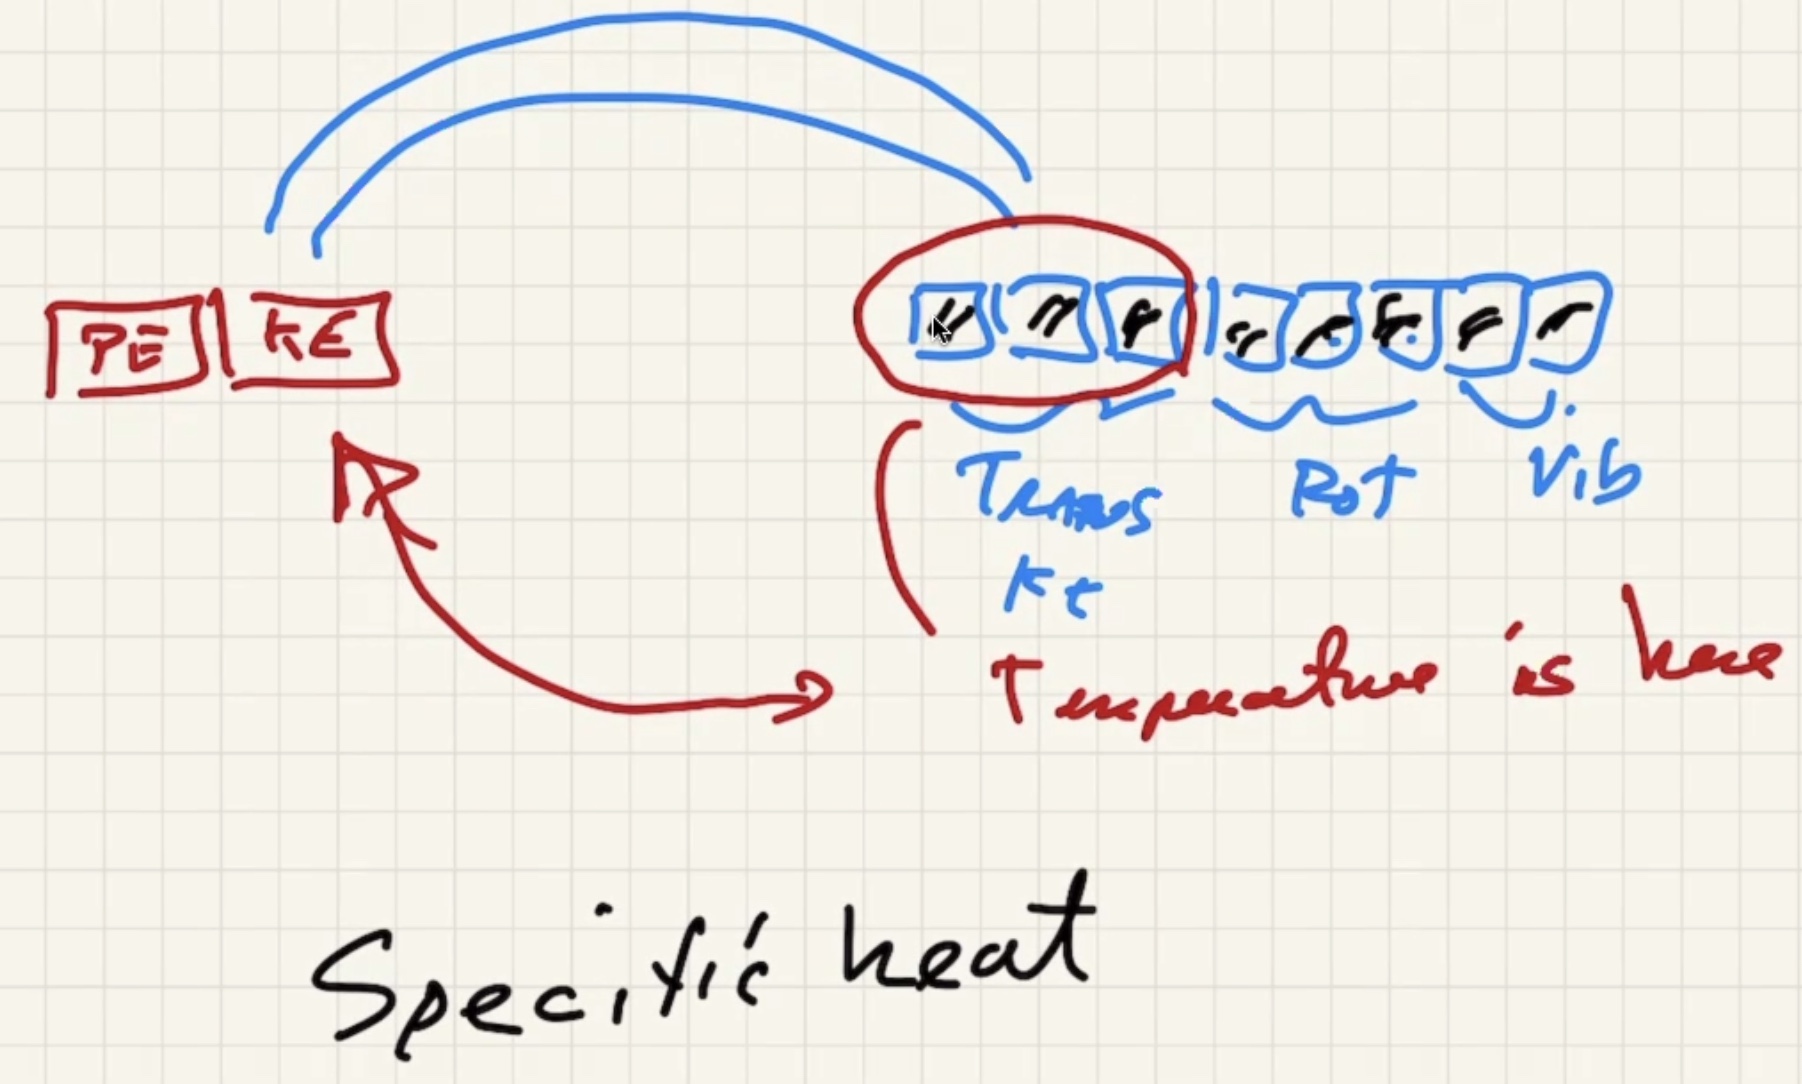 PE KE
Trans Rot Vib
KE
Temperature is here
Specific heat